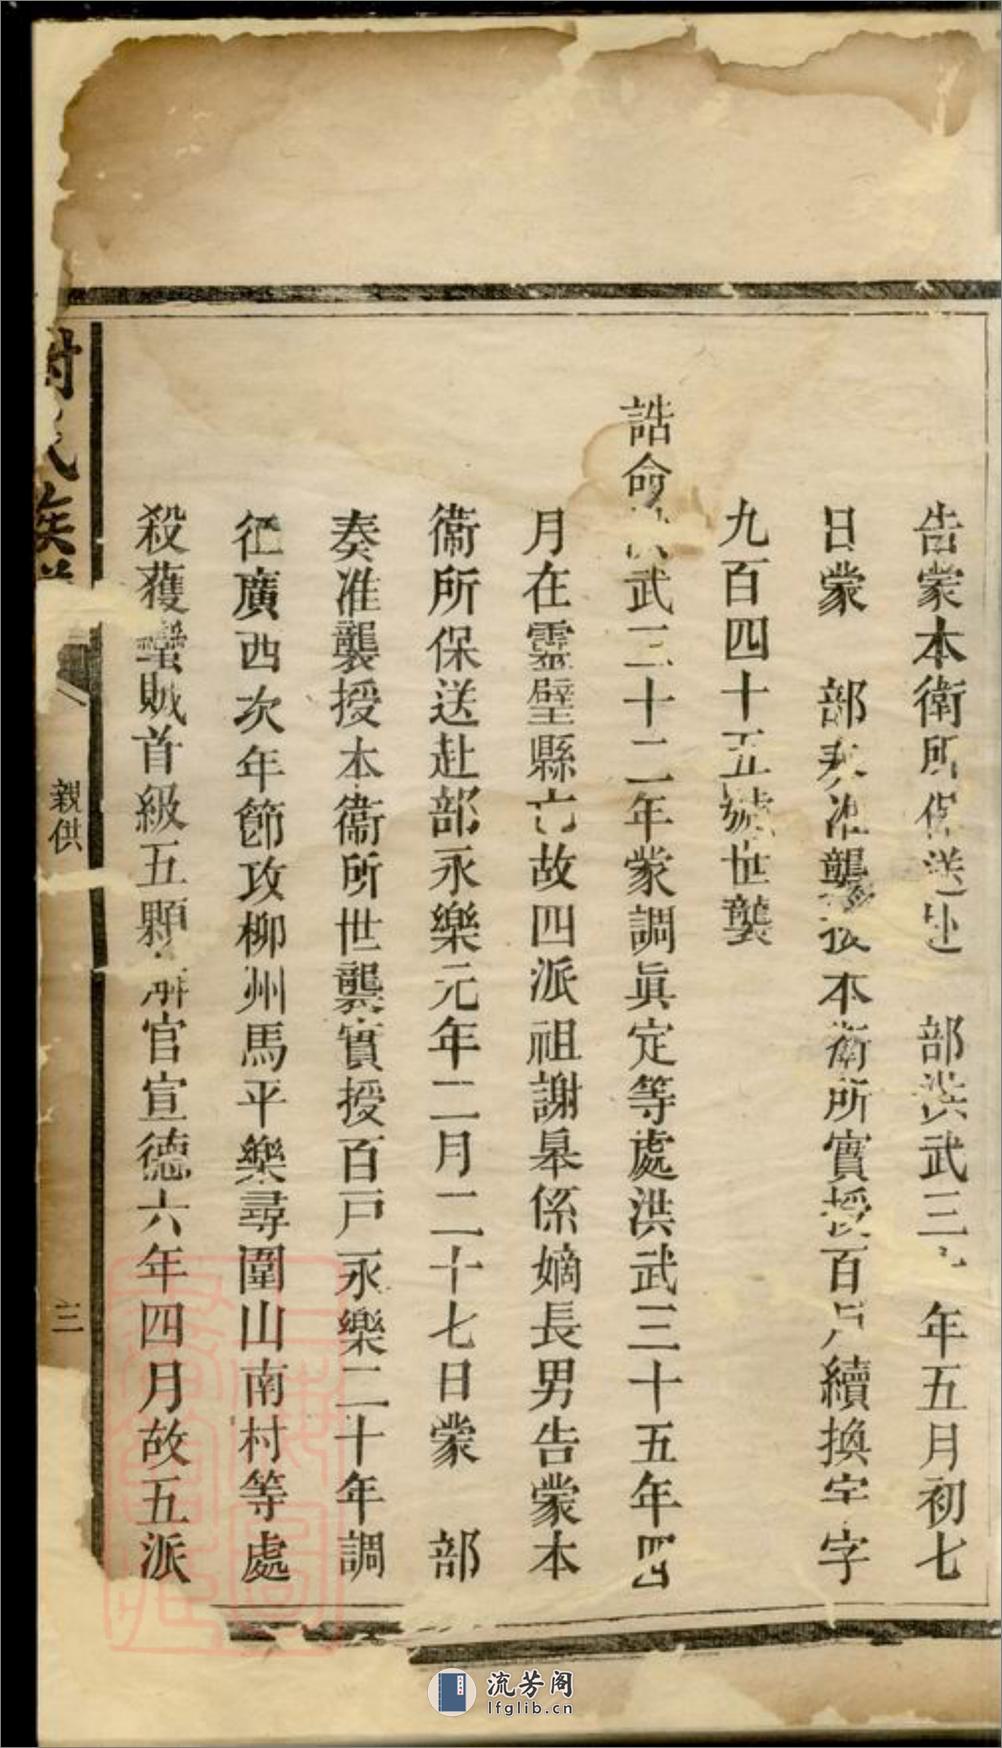 告蒙本衛所保送赴　部洪武三　年五月初七
日蒙　部奏准襲授本衛所實授百戶續換字字
九百四十五號世襲
誥命洪武三十二年蒙調眞定等處洪武三十五年四
月在靈璧縣亡故四派祖謝皋係嫡長男告蒙本
衞所保送赴部永樂元年二月二十七日蒙　部
奏准襲授本衞所世襲實授百戶永樂二十年調
征廣西次年節攻柳州馬平樂尋圍山南村等處
殺獲蠻賊首級五顆解官宣德六年四月故五派
謝氏族譜
親供
三
流芳阁
lfglib.cn